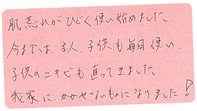 肌荒れがひどく使い始めました
今までは主人、子供も毎日使い、
子供のニキビも直ってきました
我家に、かかせないものになりました!